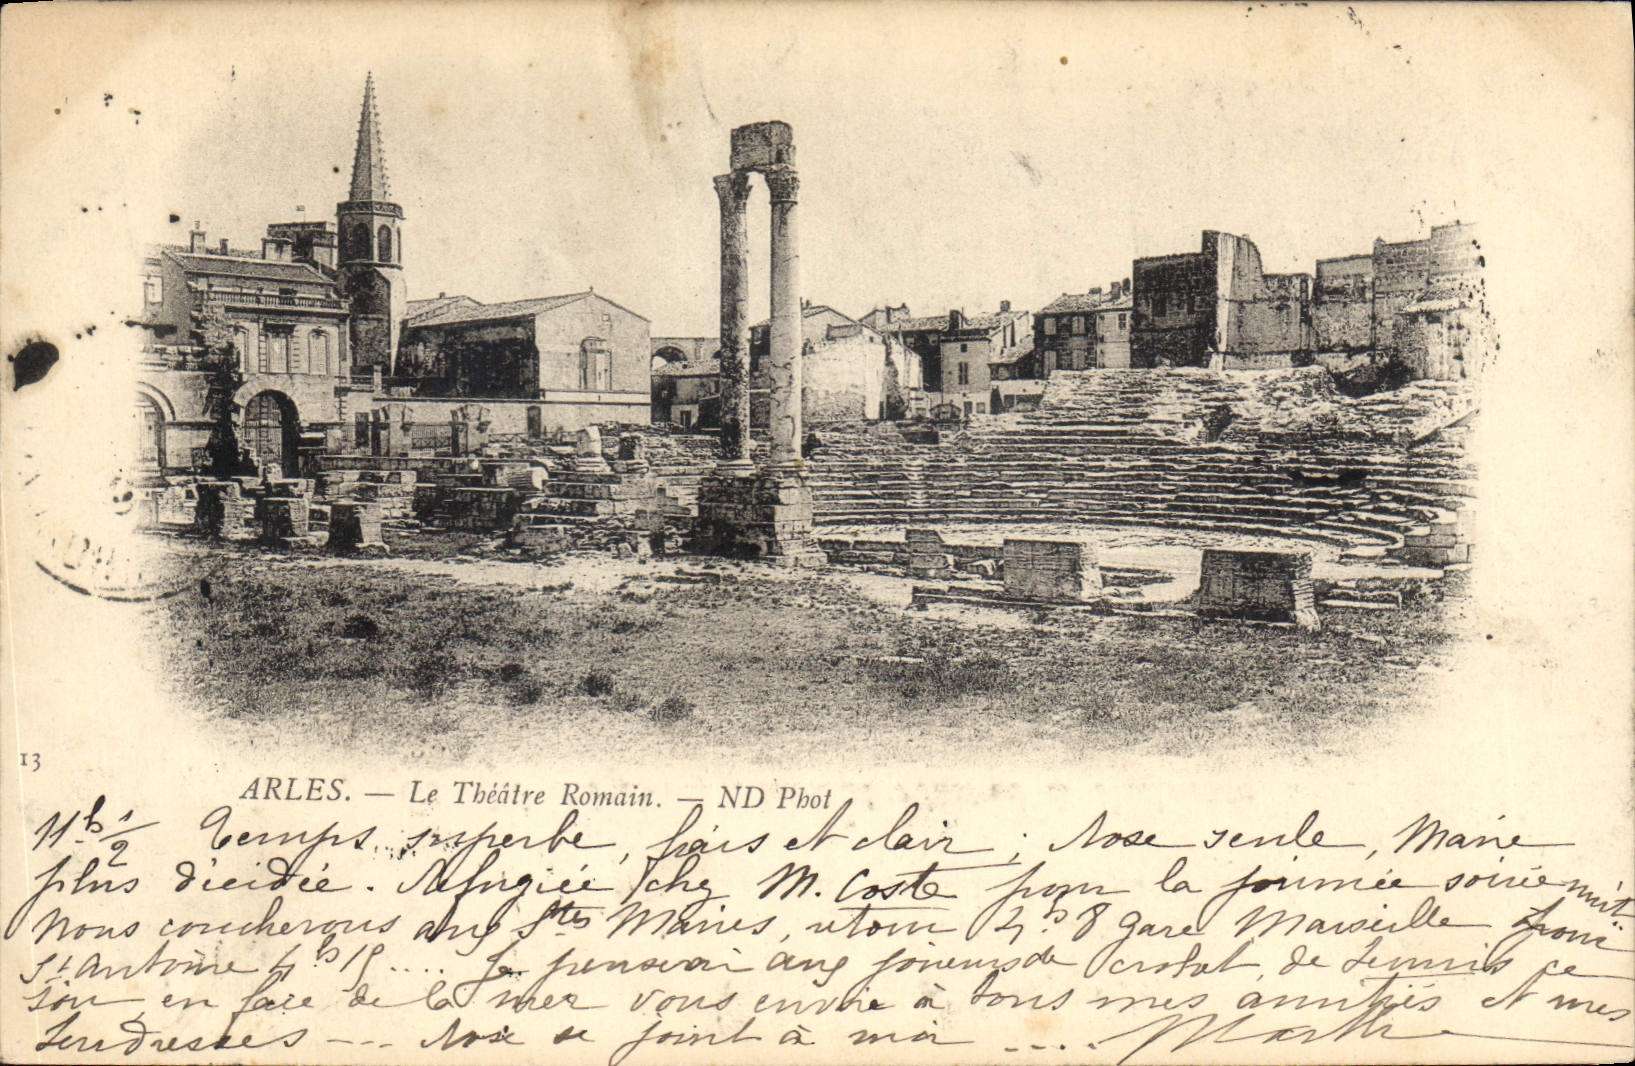 13
ARLES. — Le Théâtre Romain. — ND Phot
11h 1/2 Temps superbe, frais et clair; Rose seule, Marie
plus décidée. Réfugiée chez M. Coste pour la journée soirée nuit
Nous coucherons aux Stes Maries, retour 4h 8 gare Marseille
St Antoine 4h 15 .... Je penserai aux joueurs de crokat, de tennis ce
soir, en face de la mer vous envoie à tous mes amitiés et mes
tendresses --- Rose se joint à moi .... Marthe